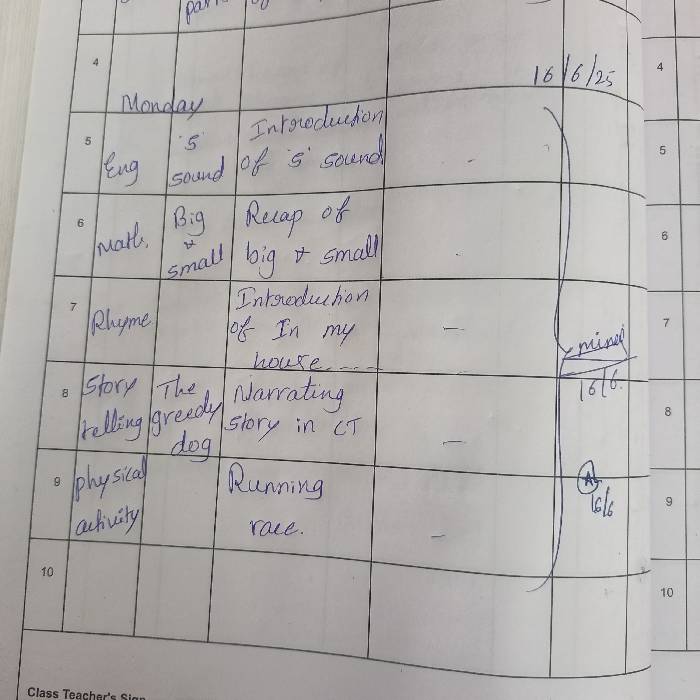 4
16/6/25
4
Monday
5 Eng 's' sound Introduction of 's' sound
5
6 Math. Big & small Recap of big & small
6
7 Rhyme Introduction of In my house.... —
7
16/6.
8 Story telling The greedy dog Narrating story in CT —
8
9 physical activity Running race. —
A
16/6
9
10
10
Class Teacher's Sign